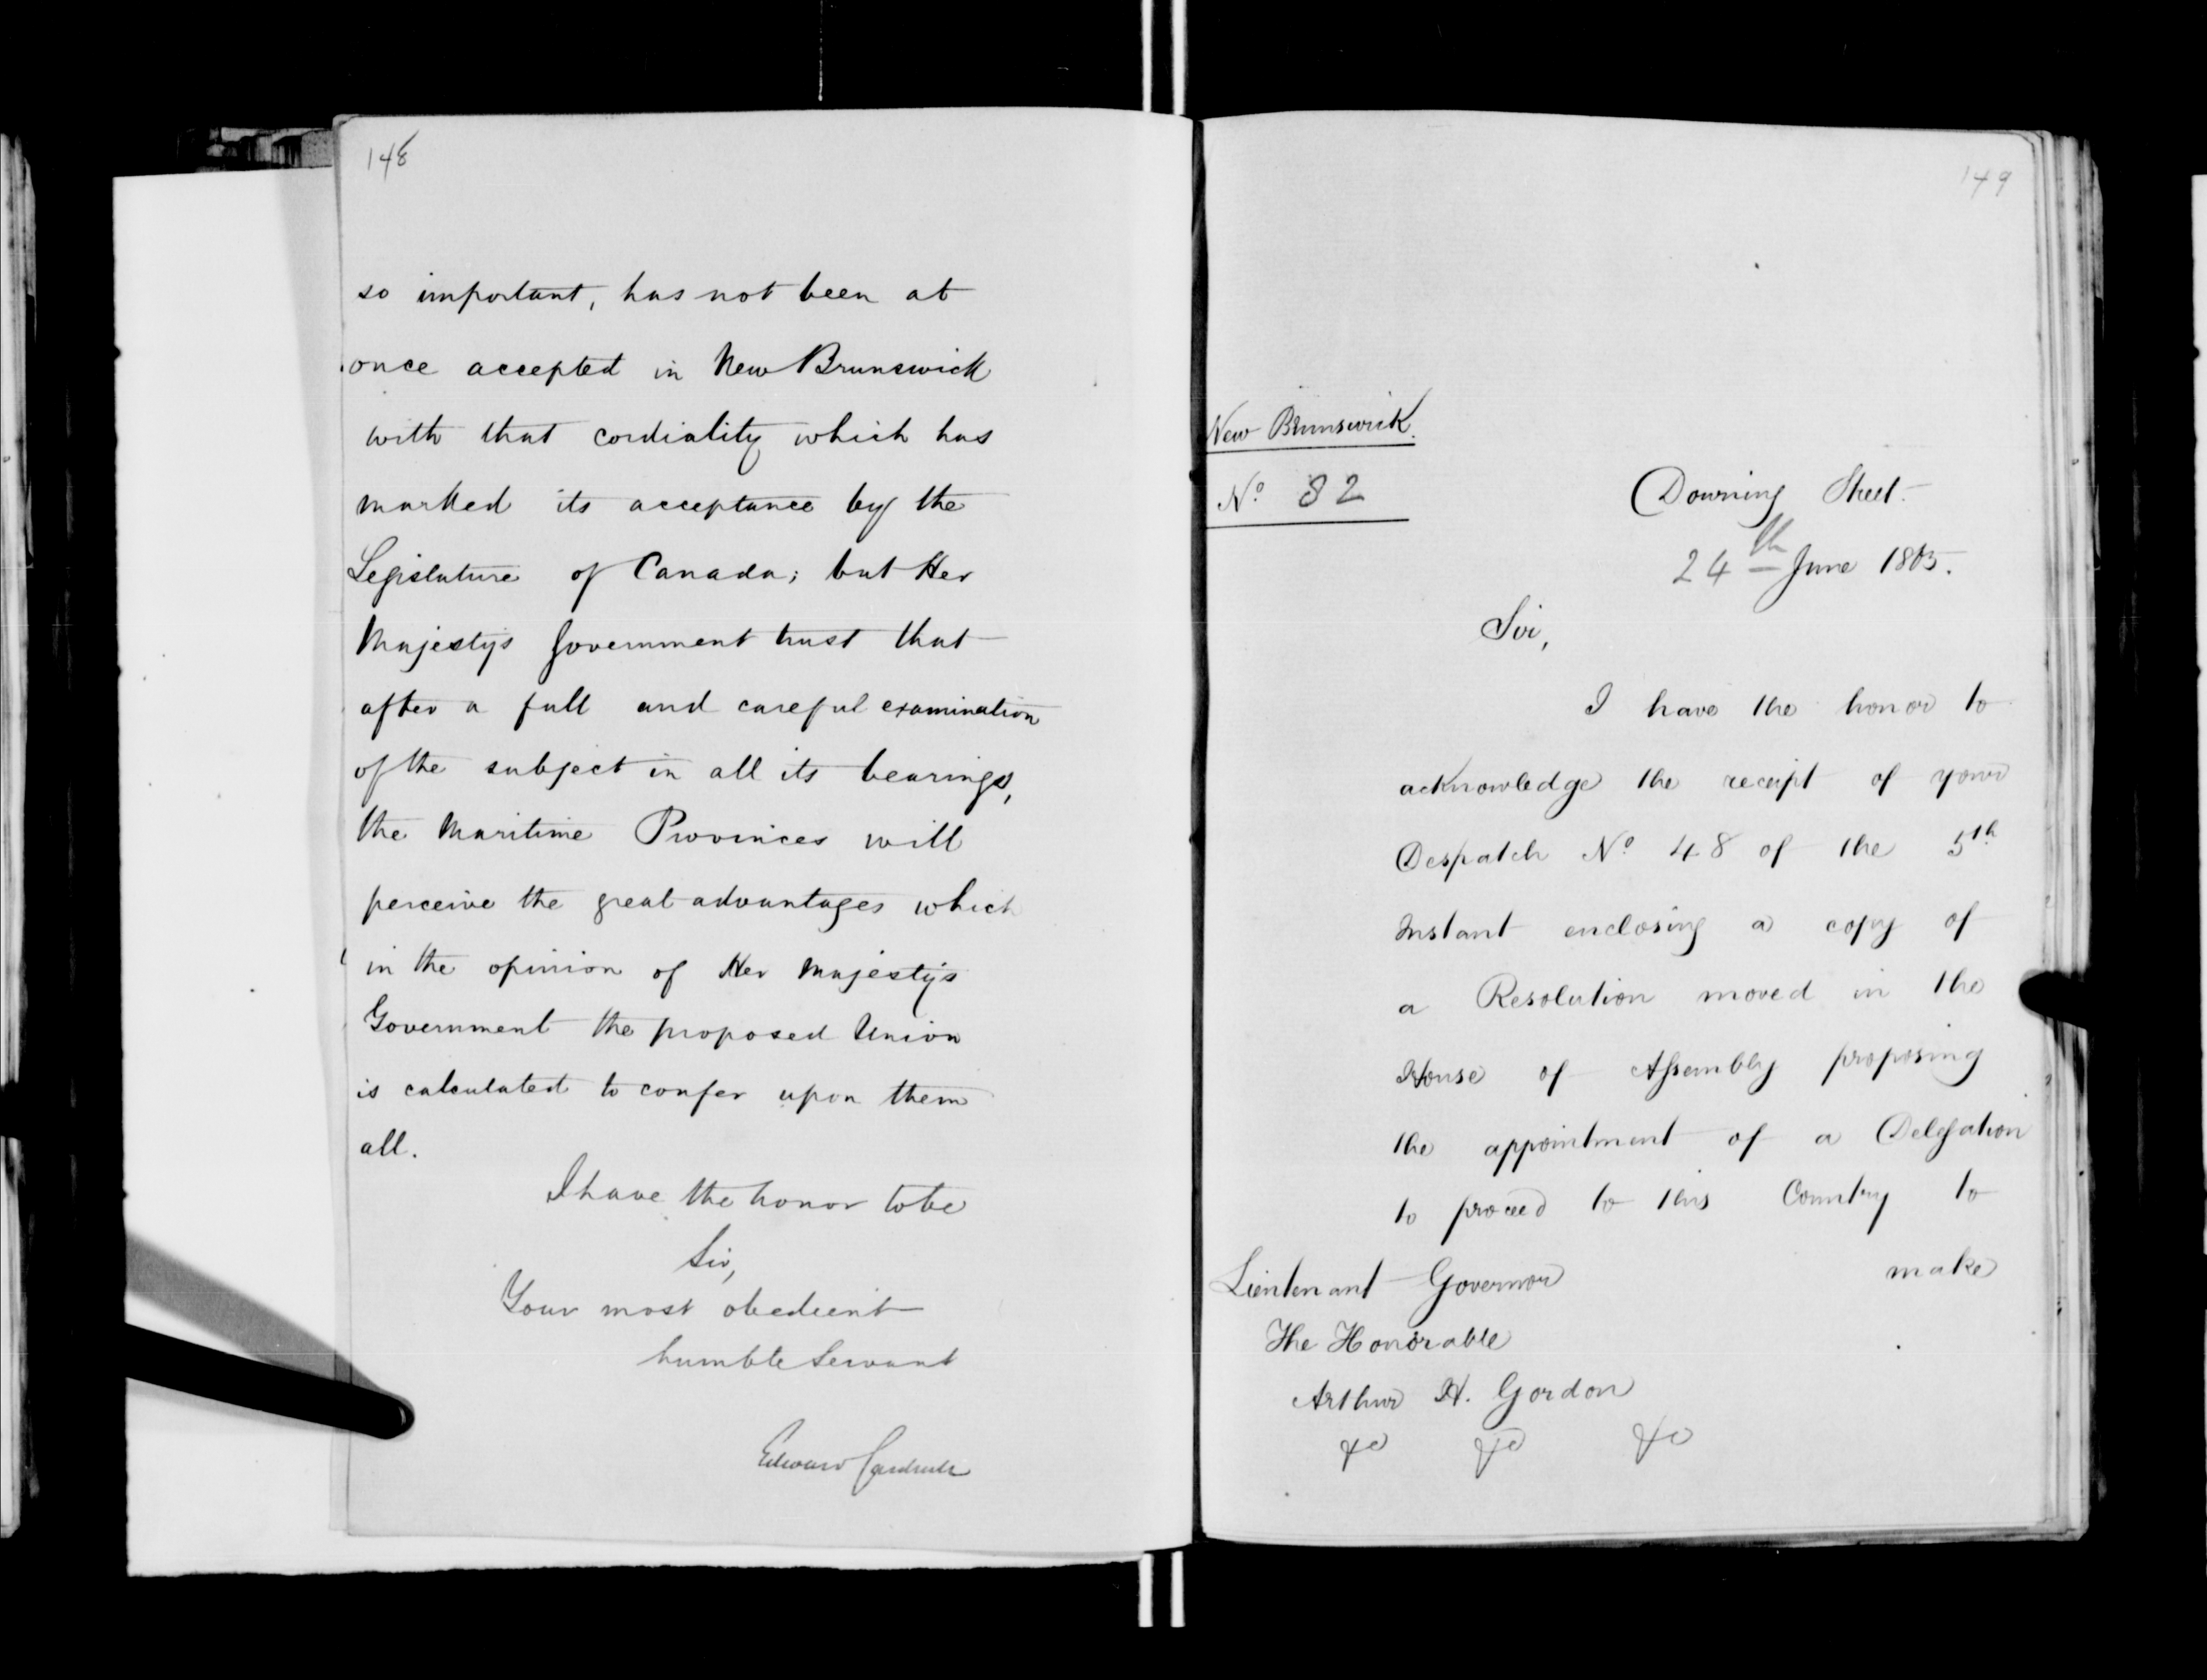 148
so important, has not been at
once accepted in New Brunswick
with that cordiality which has
marked its acceptance by the
Legislature of Canada; but Her
Majesty's Government trust that
after a full and careful examination
of the subject in all its bearings,
the Maritime Provinces will
perceive the great advantages which
in the opinion of Her Majesty's
Government the proposed Union
is calculated to confer upon them
all.
I have the honor to be
Sir,
Your most obedient
humble Servant
Edward Cardwell
149
New Brunswick.
No. 82
Downing Street.
24th June 1865.
Sir,
I have the honor to
acknowledge the receipt of your
Despatch No 48 of the 5th
Instant enclosing a copy of
a Resolution moved in the
House of Assembly proposing
the appointment of a Delegation
to proceed to this Country to
make
Lieutenant Governor
The Honorable
Arthur H. Gordon
&c &c &c